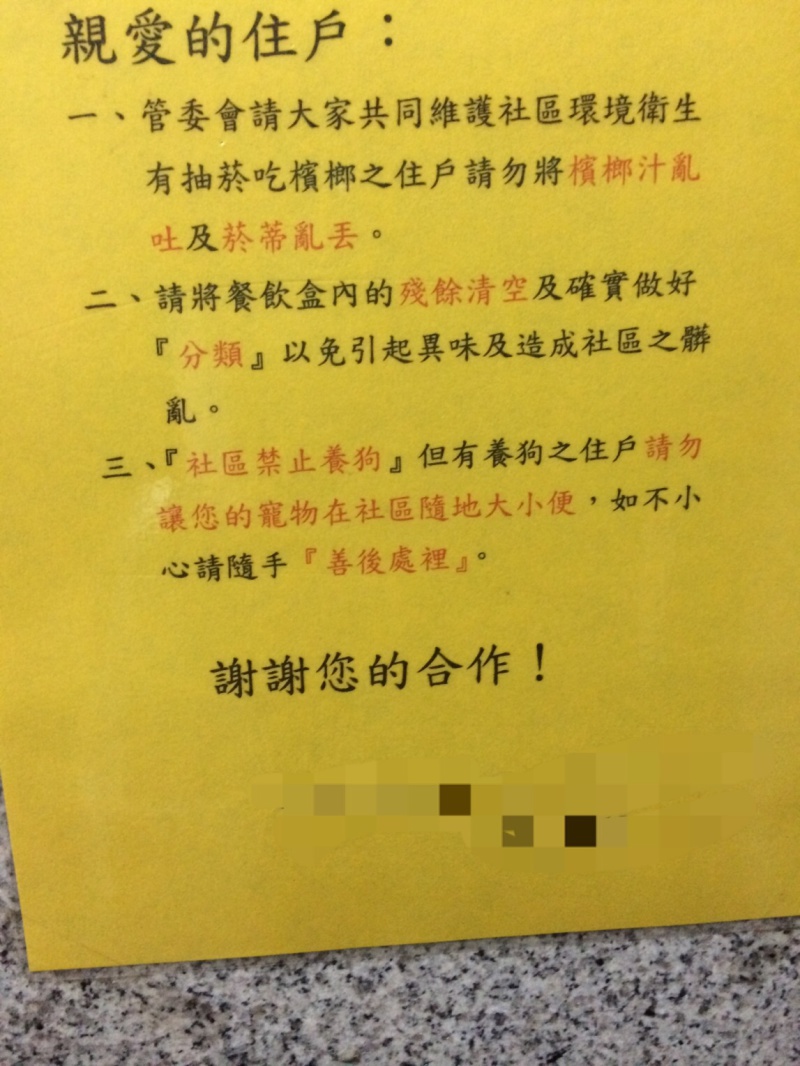 親愛的住戶：
一、管委會請大家共同維護社區環境衛生
有抽菸吃檳榔之住戶請勿將檳榔汁亂
吐及菸蒂亂丟。
二、請將餐飲盒內的殘餘清空及確實做好
『分類』以免引起異味及造成社區之髒
亂。
三、『社區禁止養狗』但有養狗之住戶請勿
讓您的寵物在社區隨地大小便，如不小
心請隨手『善後處裡』。
謝謝您的合作！